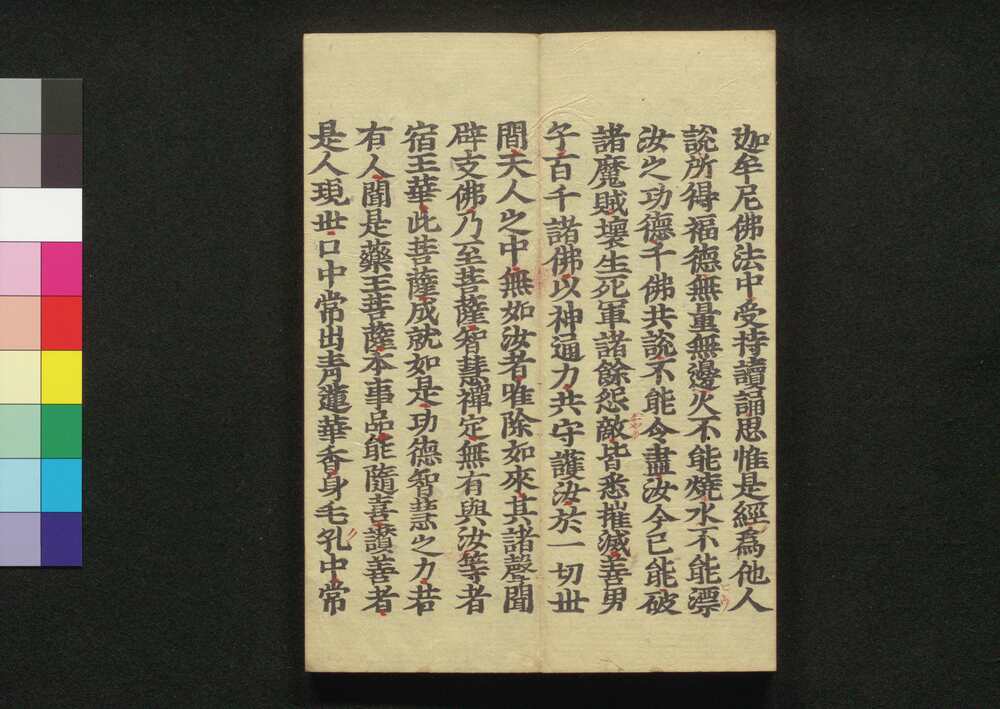 迦牟尼佛法中受持讀誦思惟是經為他人
說所得福德無量無邊火不能燒水不能漂
汝之功德千佛共說不能令盡汝今已能破
諸魔賊壞生死軍諸餘怨敵皆悉摧滅善男
子百千諸佛以神通力共守護汝於一切世
間天人之中無如汝者唯除如來其諸聲聞
辟支佛乃至菩薩智慧禪定無有與汝等者
宿王華此菩薩成就如是功德智慧之力若
有人聞是藥王菩薩本事品能隨喜讚善者
是人現世口中常出青蓮華香身毛孔中常